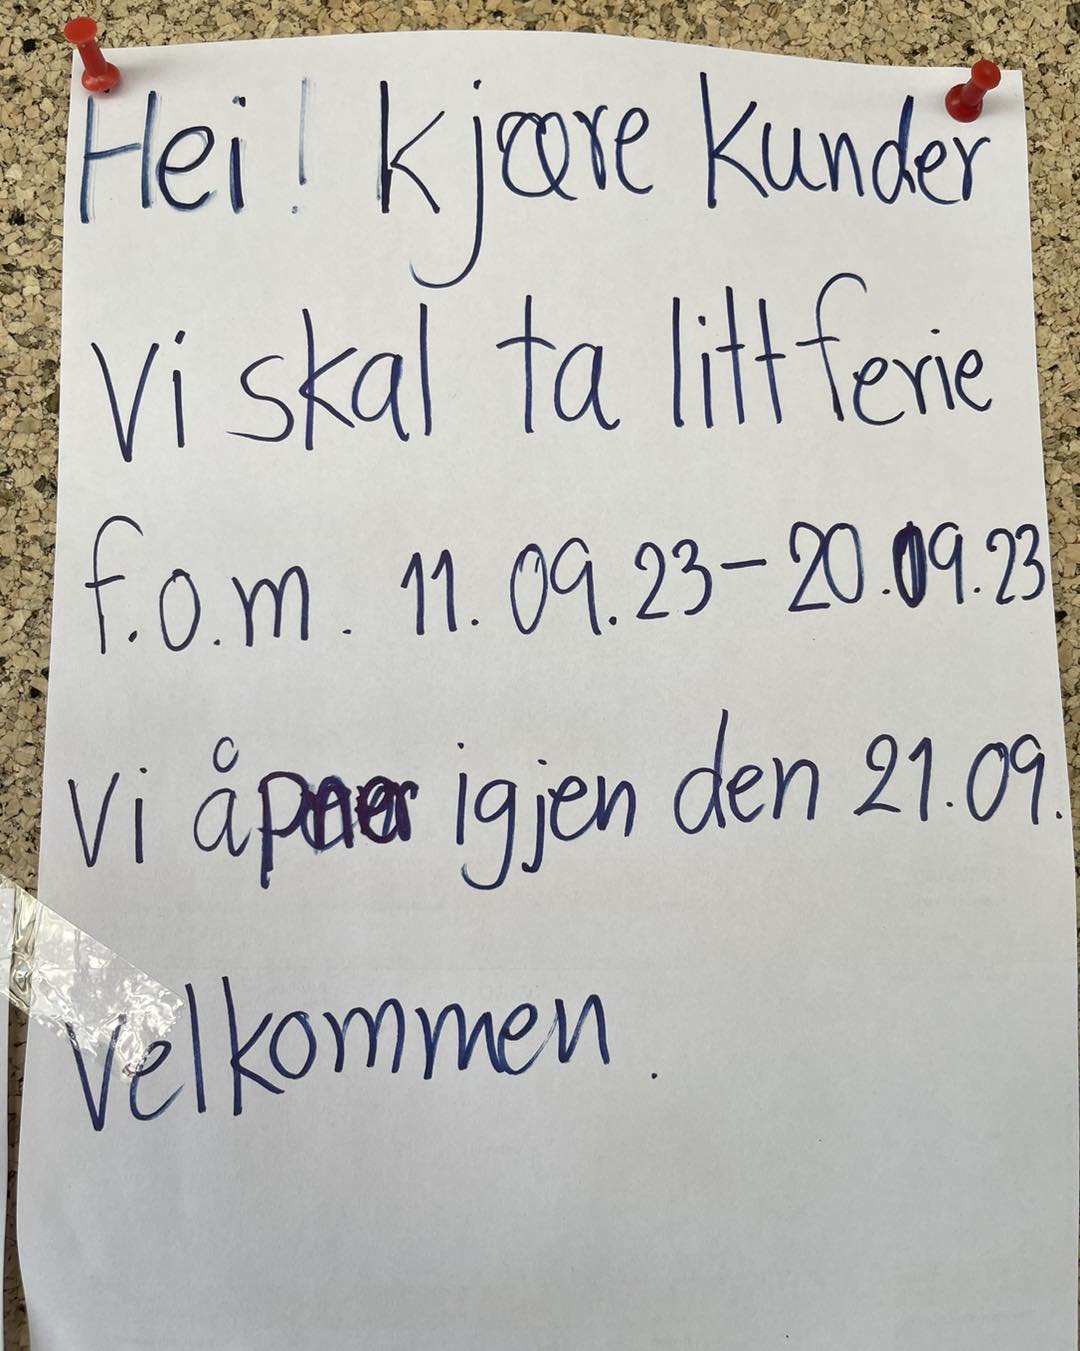 Hei! kjære kunder
Vi skal ta litt ferie
f.o.m. 11.09.23-20.09.23
Vi åpner igjen den 21.09.
Velkommen.